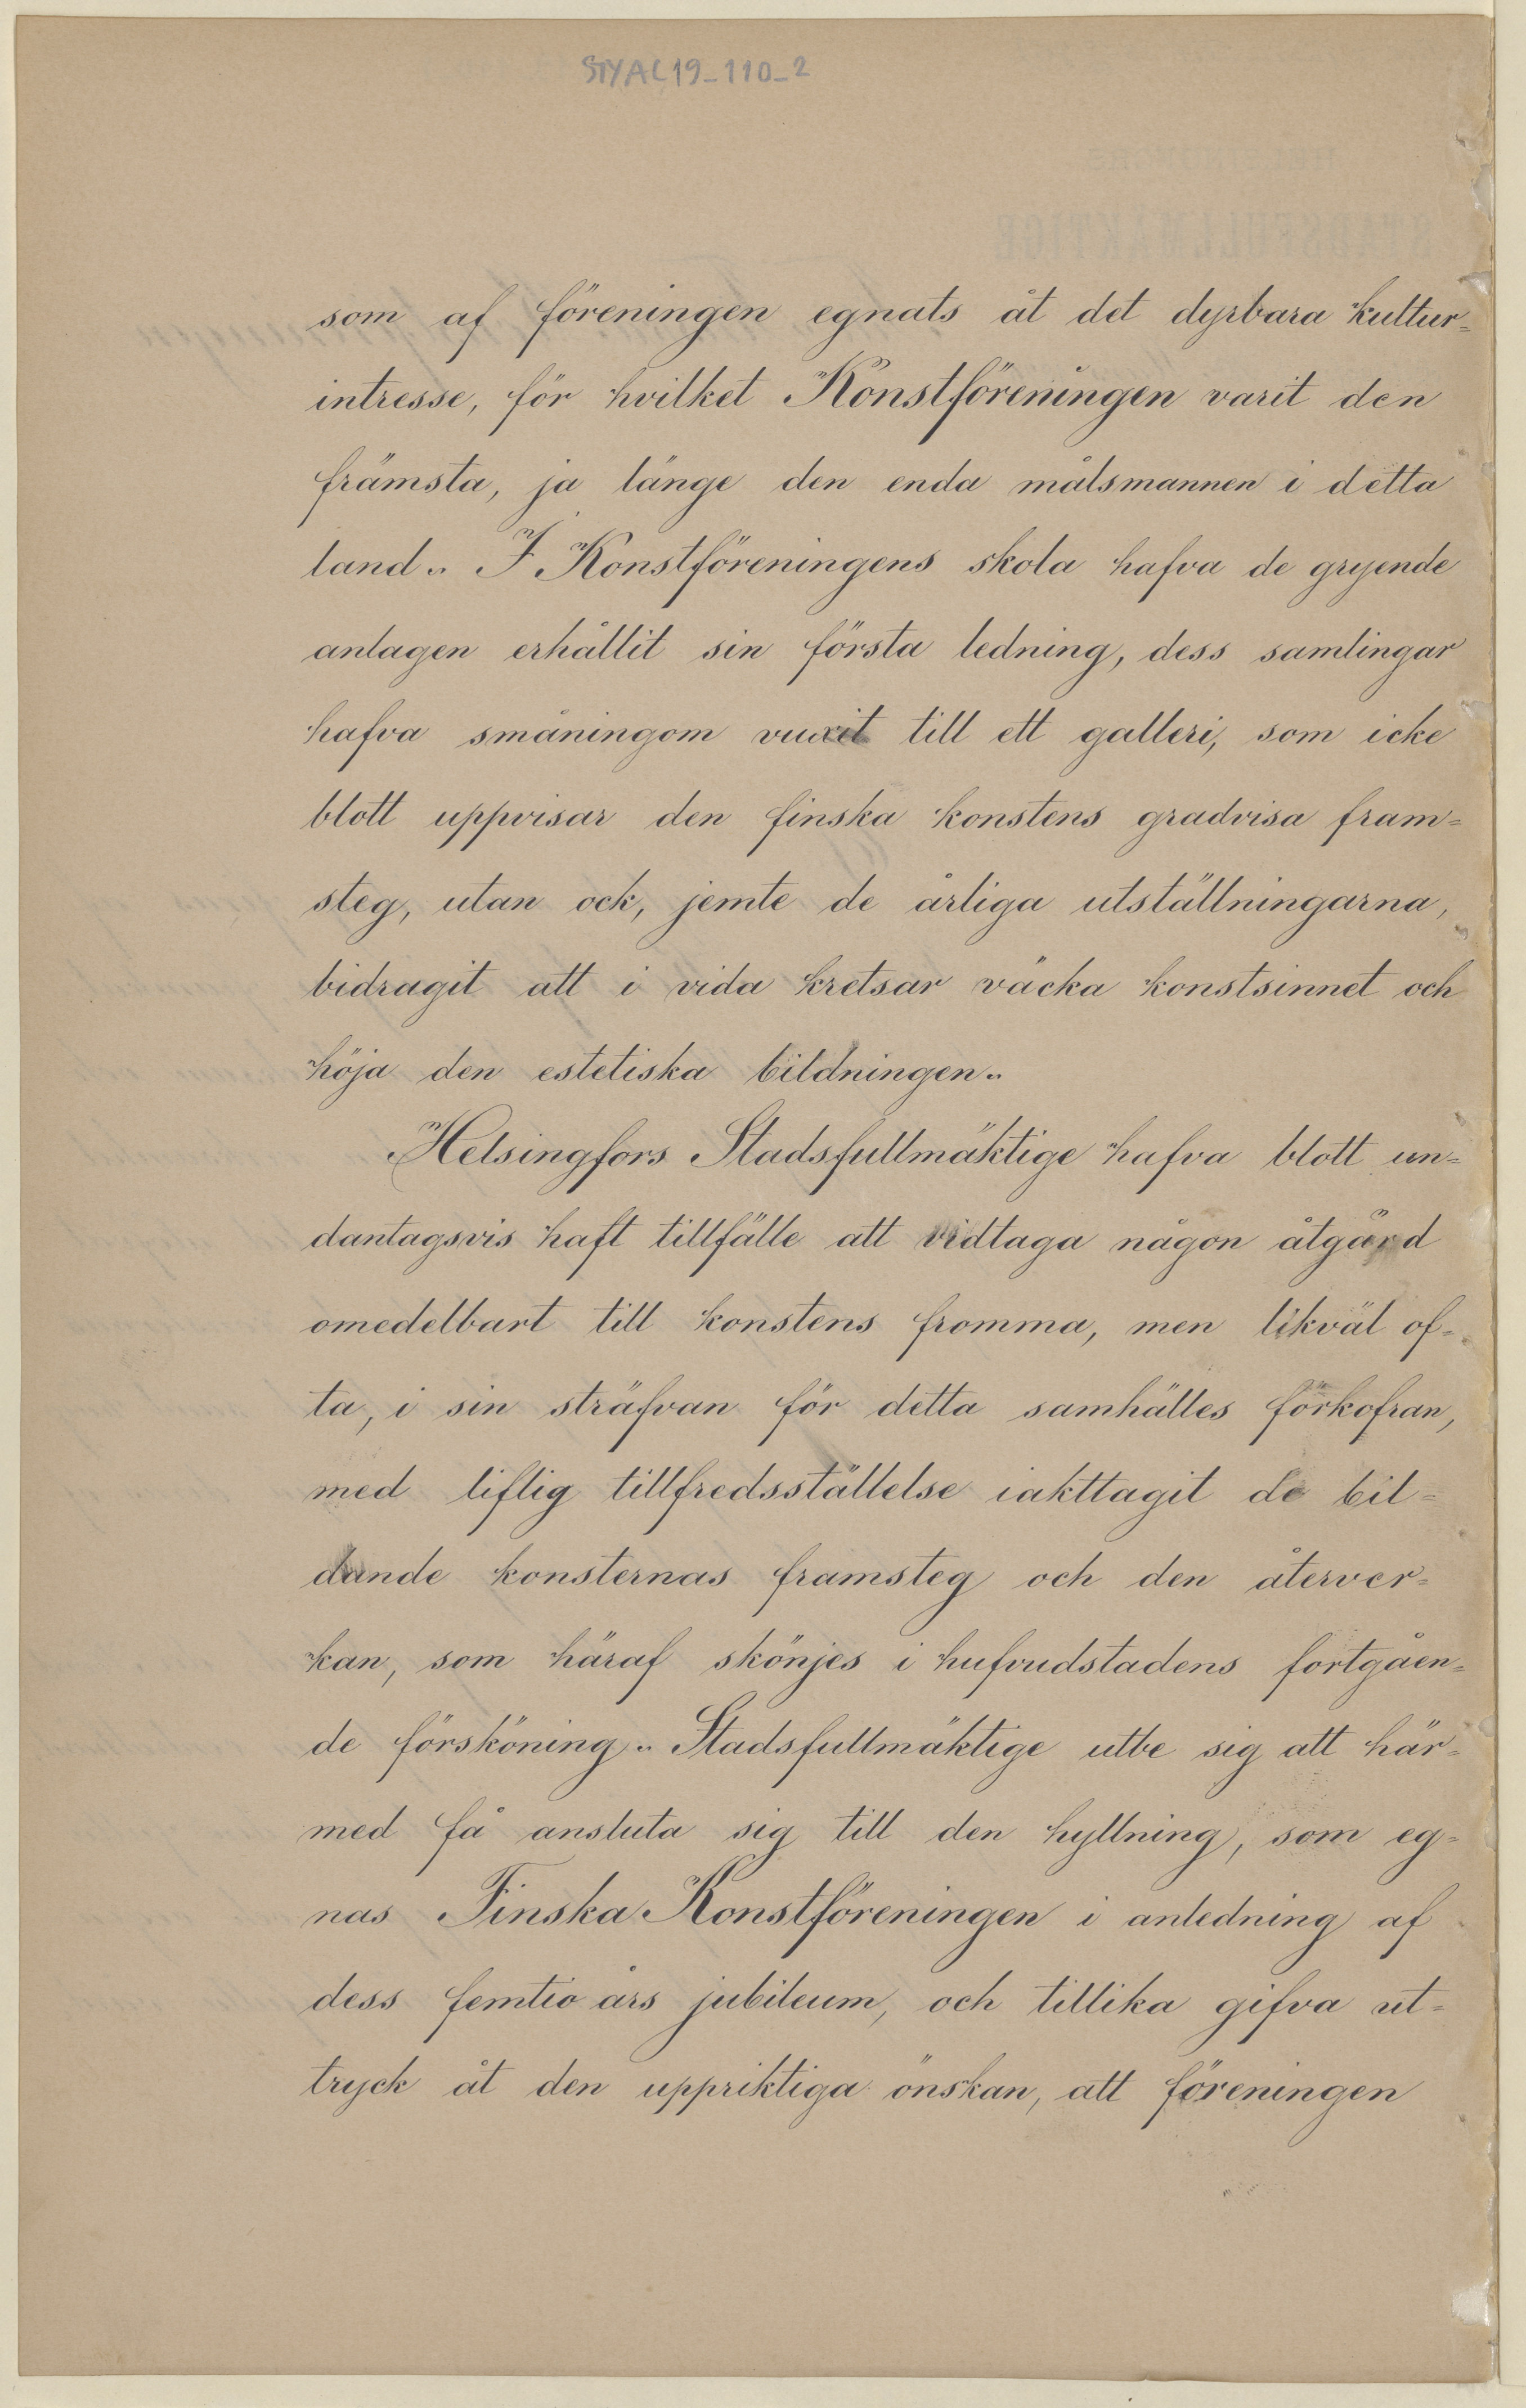 STYAC19_110_2
som af föreningen egnats åt det dyrbara kultur=
intresse, för hvilket Konstföreningen varit den
främsta, ja länge den enda målsmannen i detta
land. I Konstföreningens skola hafva de gryende
anlagen erhållit sin första ledning, dess samlingar
hafva småningom vuxit till ett galleri, som icke
blott uppvisar den finska konstens gradvisa fram=
steg, utan ock, jemte de årliga utställningarna,
bidragit att i vida kretsar väcka konstsinnet och
höja den estetiska bildningen.
Helsingfors Stadsfullmäktige hafva blott un=
dantagsvis haft tillfälle att vidtaga någon åtgärd
omedelbart till konstens fromma, men likväl of=
ta, i sin sträfvan för detta samhälles förkofran,
med liflig tillfredsställelse iakttagit de bil=
dande konsternas framsteg och den återver=
kan, som häraf skönjes i hufvudstadens fortgåen=
de försköning. Stadsfullmäktige utbe sig att här=
med få ansluta sig till den hyllning, som eg=
nas Finska Konstföreningen i anledning af
dess femtio års jubileum, och tillika gifva ut=
tryck åt den uppriktiga önskan, att föreningen